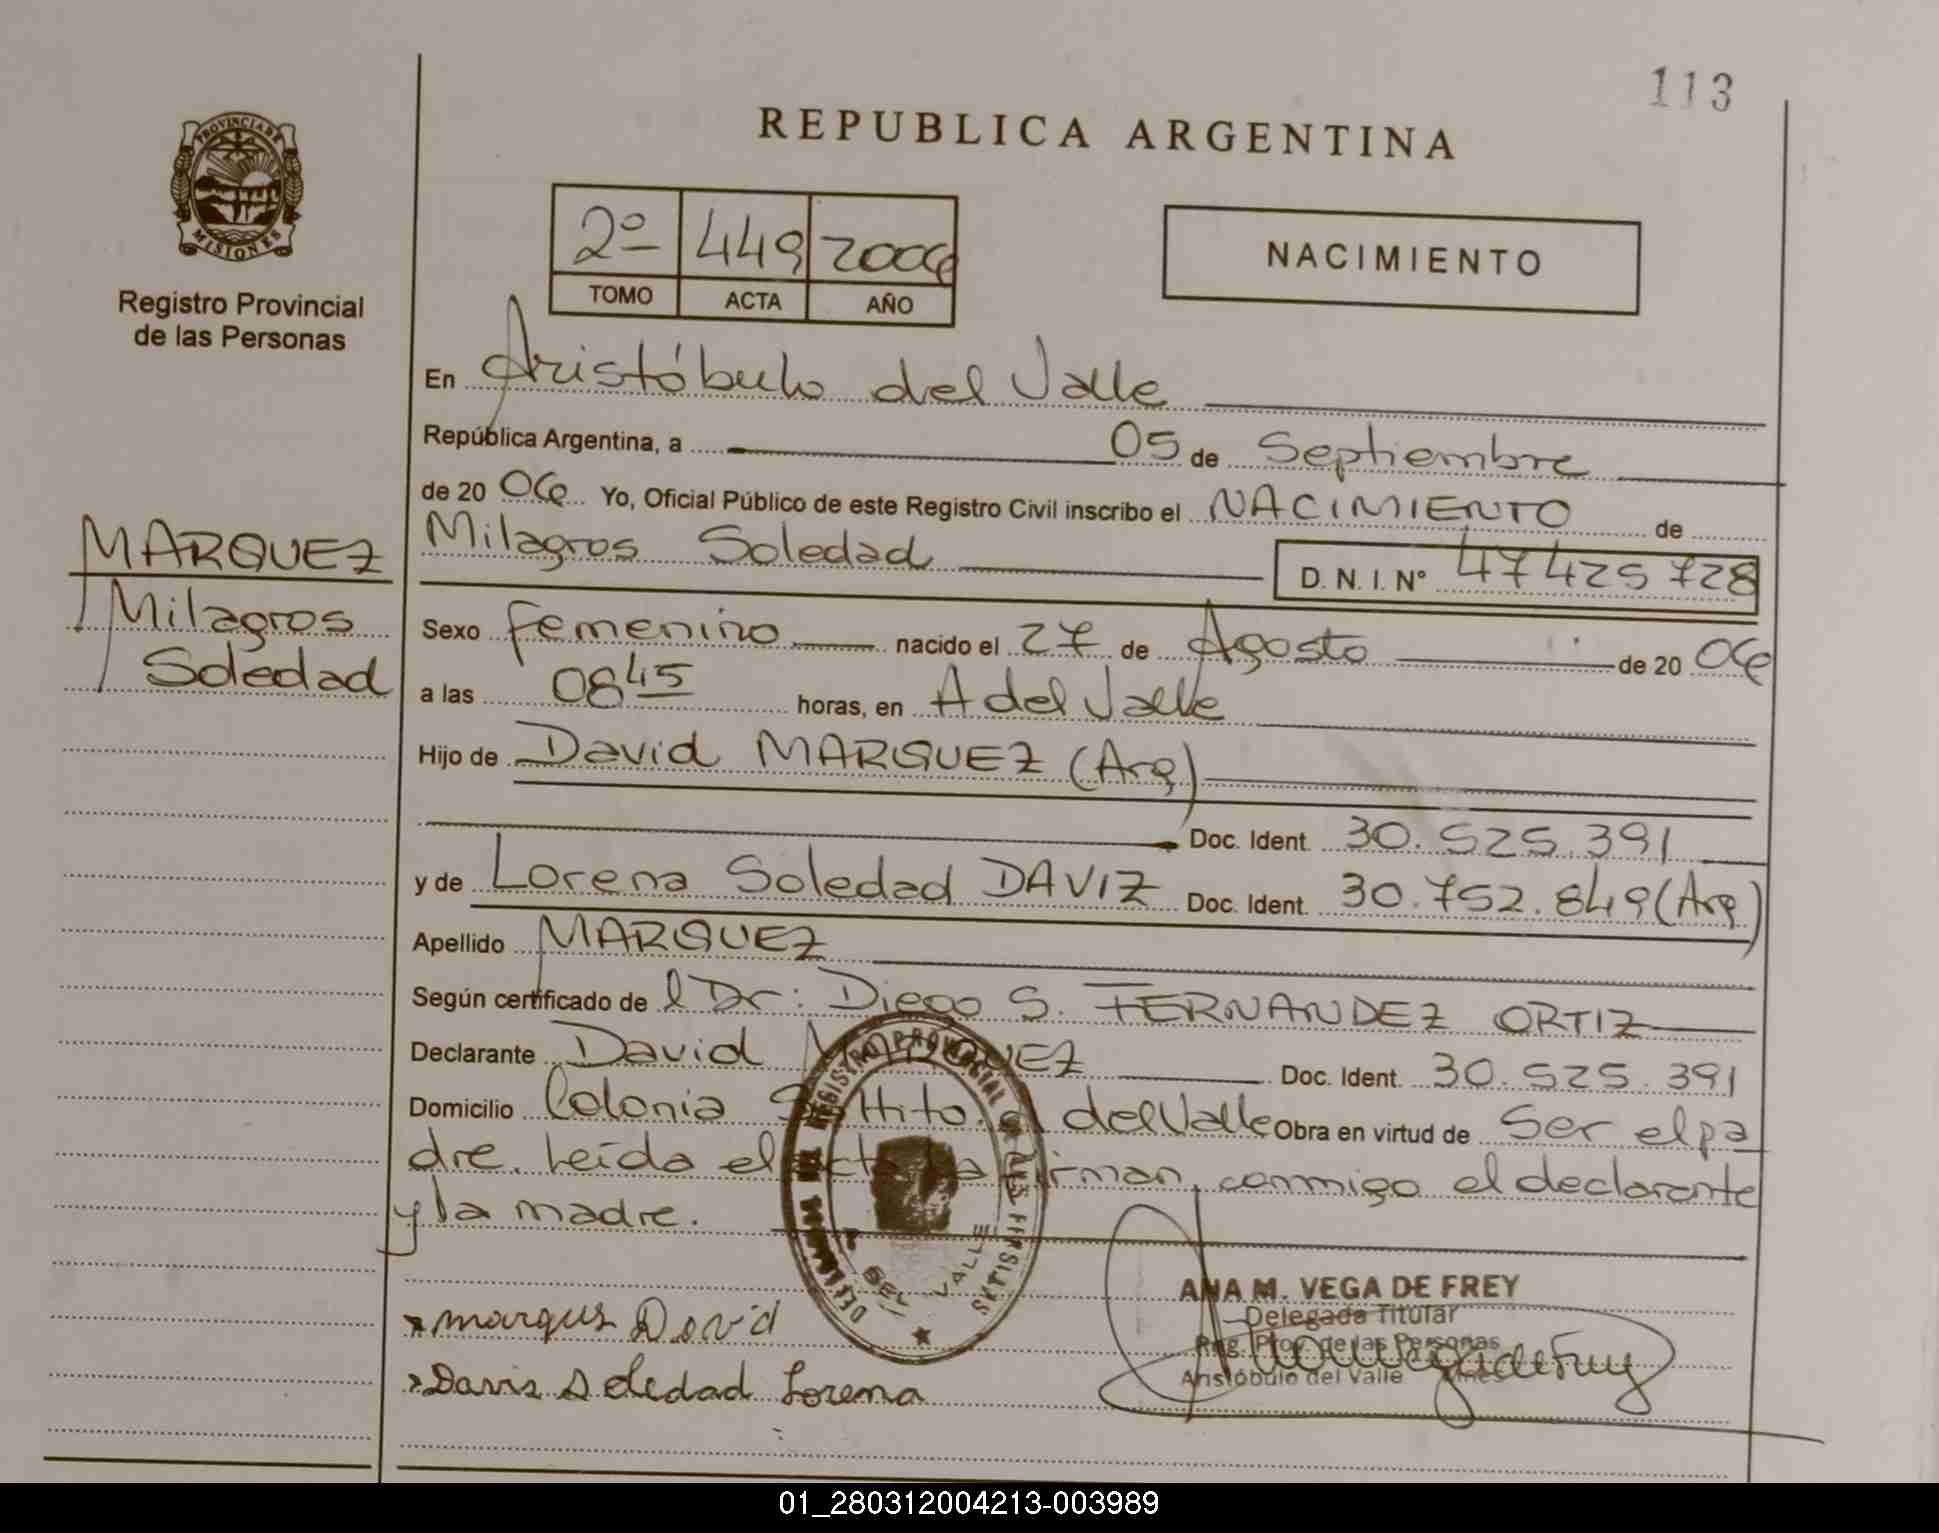 113
REPUBLICA ARGENTINA
PROVINCIA DE
MISIONES
Registro Provincial
de las Personas
2º 449 2006
TOMO ACTA AÑO
NACIMIENTO
En Aristóbulo del Valle
República Argentina, a 05 de Septiembre
de 20 06 Yo, Oficial Público de este Registro Civil inscribo el NACIMIENTO de
MARQUEZ
Milagros
Soledad
Milagros Soledad D. N. I. Nº 47425728
Sexo femenino nacido el 27 de Agosto de 20 06
a las 08 45 horas, en A del Valle
Hijo de David MARQUEZ (Arg)
Doc. Ident. 30.525.391
y de Lorena Soledad DAVIZ Doc. Ident. 30.752.849 (Arg)
Apellido MARQUEZ
Según certificado de l Dr: Diego S. FERNANDEZ ORTIZ
Declarante David MARQUEZ Doc. Ident. 30.525.391
Domicilio Colonia del Valle Obra en virtud de Ser el pa
dre. Leída el acta la firman, conmigo el declarante
y la madre.
REGISTRO PROVINCIAL DE LAS PERSONAS
DEL VALLE
ANA M. VEGA DE FREY
Delegada Titular
Reg. Prov. de las Personas
Aristóbulo del Valle Mnes
marques David
Daviz Soledad Lorena
01_280312004213-003989